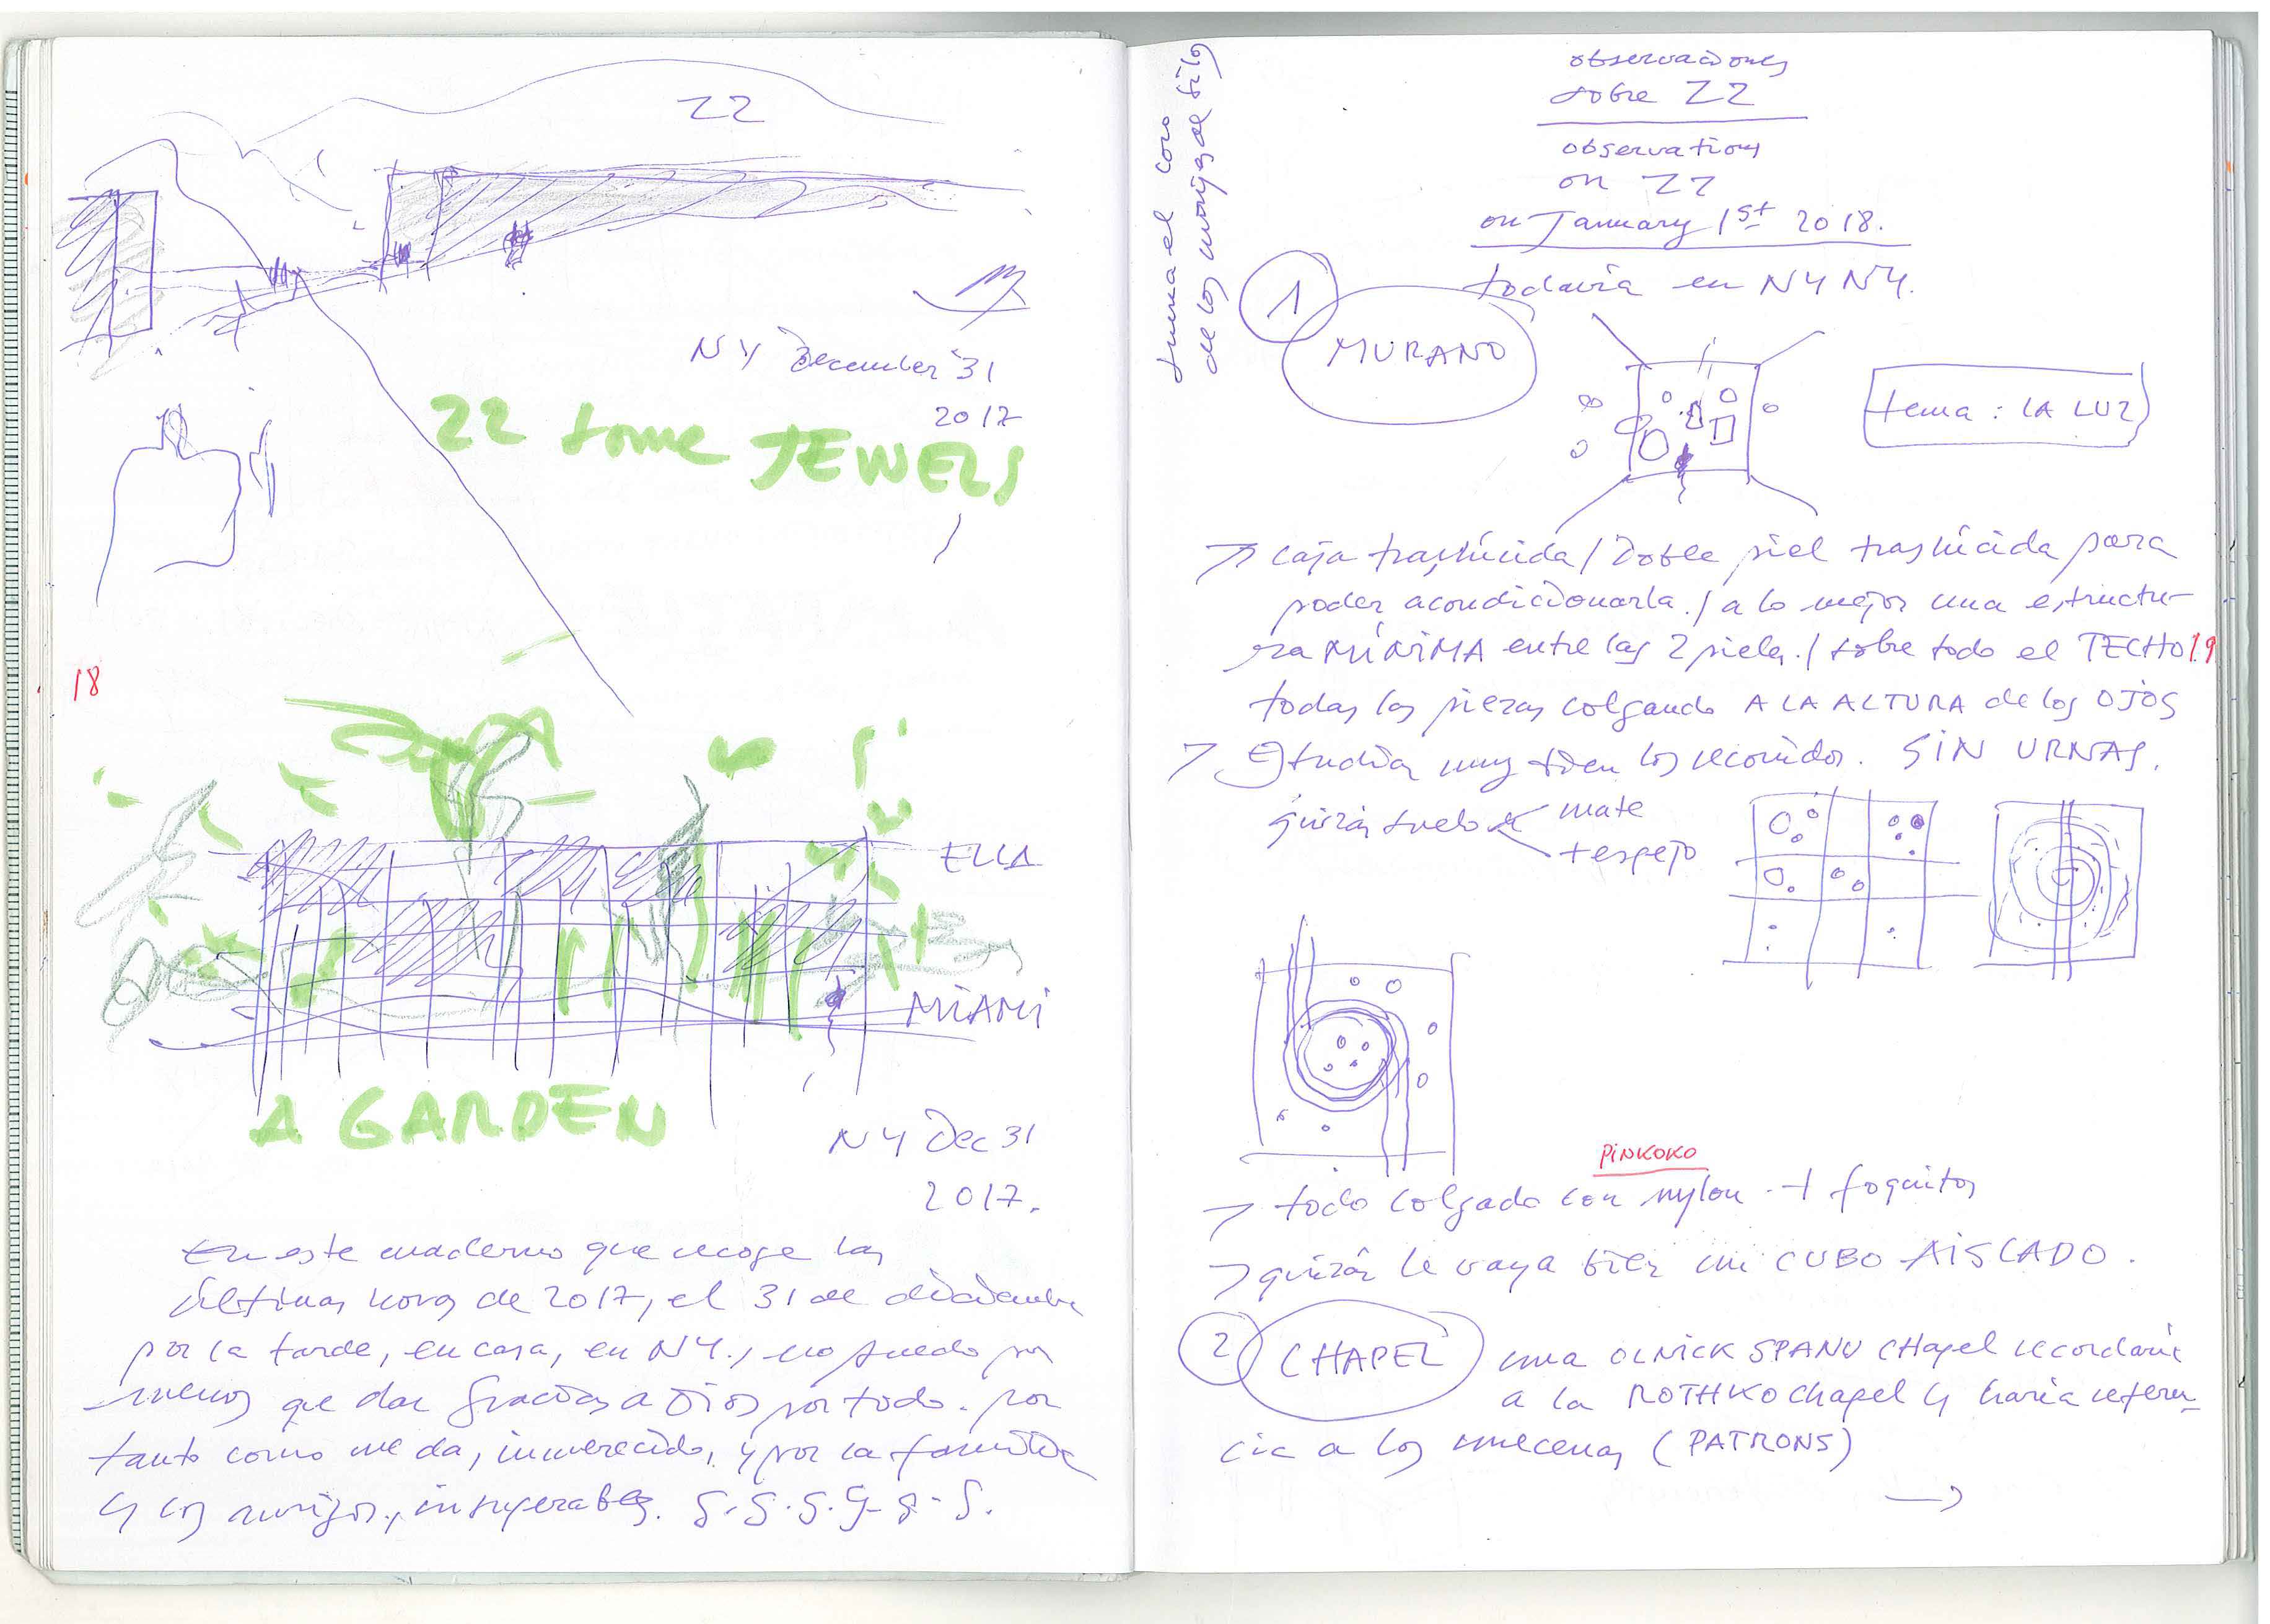 ZZ
NY December 31
2017
ZZ some JEWELS
18
ELLA
MIAMI
A GARDEN
NY Dec 31
2017.
En este cuaderno que recoge las
últimas horas de 2017, el 31 de diciembre
por la tarde, en casa, en NY., no puedo por
menos que dar gracias a Dios por todo. por
tanto como me da, inmerecido, y por la familia
y los amigos, insuperables. g. g. g. g. g. g.
suena el coro
de los monjes de Silos
observaciones
sobre ZZ
observations
on ZZ
on January 1st 2018.
todavía en NY NY.
1
MURANO
tema: LA LUZ
caja traslúcida / Doble piel traslúcida para
poder acondicionarla. / a lo mejor una estructu-
ra MÍNIMA entre las 2 pieles. / sobre todo el TECHO 19
todas las piezas colgando A LA ALTURA de los OJOS
> Estudiar muy bien los recorridos. SIN URNAS.
quizás suelo mate
+ espejo
PINKOKO
> todo colgado con nylon. + foquitos
> quizás le vaya bien un CUBO AISLADO.
2 CHAPEL una OLNICK SPANU Chapel recordaría
a la ROTHKO chapel y haría referen-
cia a los mecenas (PATRONS)
→